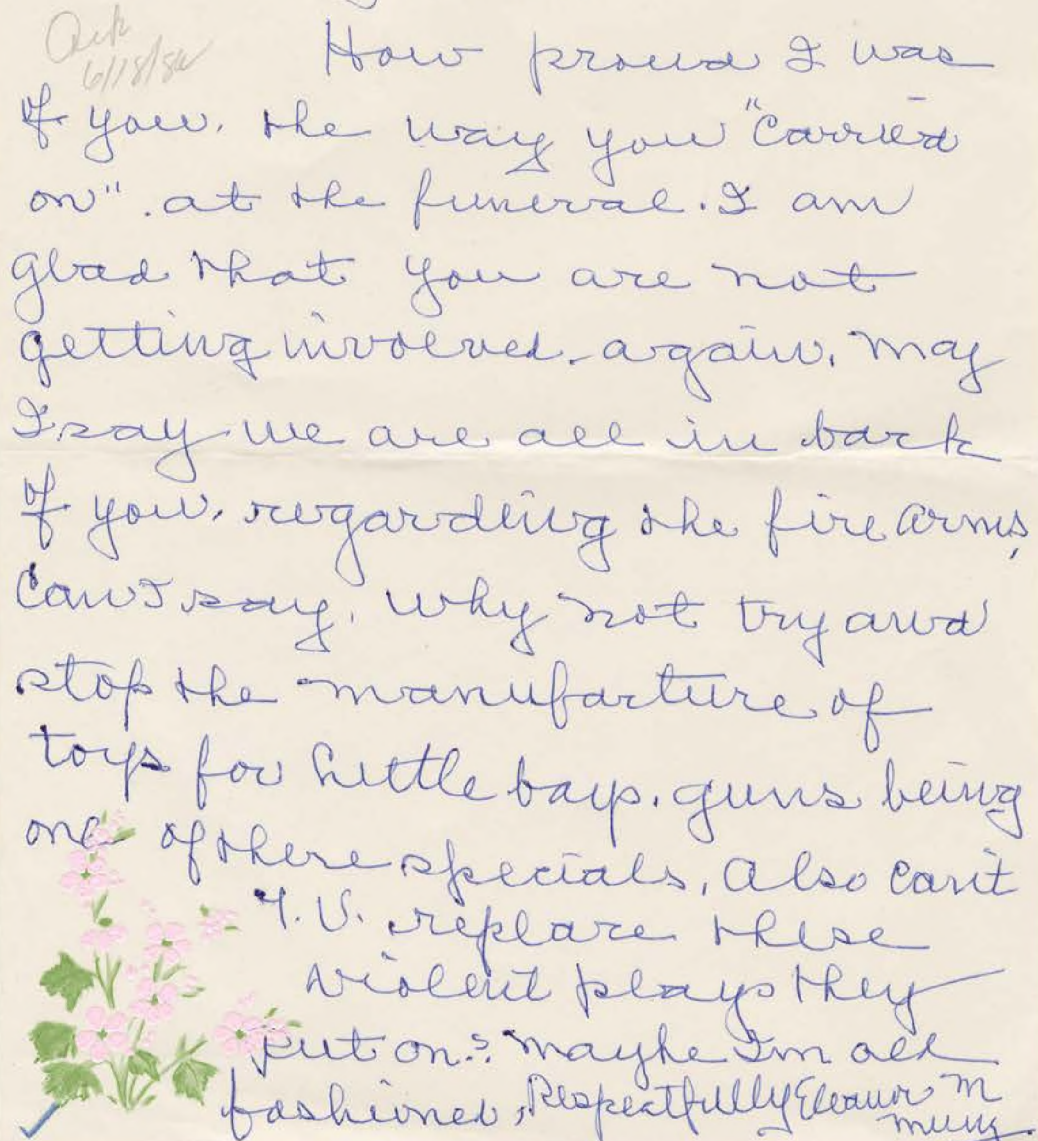 Ack
6/18/86
How proud I was
of you, the way you "carried
on". at the funeral. I am
glad that you are not
getting involved again. May
I say we are all in back
of you, regarding the fire arms,
Can I say, why not try and
stop the manufacture of
toys for little boys. guns being
one of there specials, Also can't
T.V. replace these
violent plays they
put on? maybe I'm old
fashioned, Respectfully Eleanor M